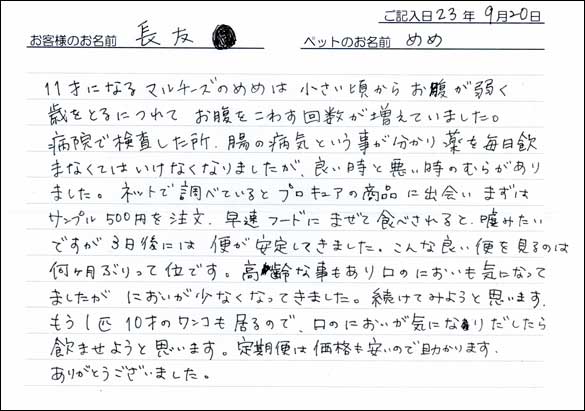 ご記入日 23年 9月20日
お客様のお名前 長友 ペットのお名前 めめ
11才になるマルチーズのめめは 小さい頃から お腹が弱く
歳をとるにつれて お腹をこわす回数が増えていました。
病院で検査した所、腸の病気という事が分かり 薬を毎日飲
まなくてはいけなくなりましたが、良い時と悪い時のむらがあり
ました。ネットで調べているとプロキュアの商品に出会い まずは
サンプル500円を注文、早速フードにまぜて食べされると、嘘みたい
ですが3日後には 便が安定してきました。こんな良い便を見るのは
何ヶ月ぶりって位です。高齢な事もあり口のにおいも気になって
ましたが においが少なくなってきました。続けてみようと思います。
もう1匹 10才のワンコも居るので、口のにおいが気になりだしたら
飲ませようと思います。定期便は価格も安いので助かります。
ありがとうございました。